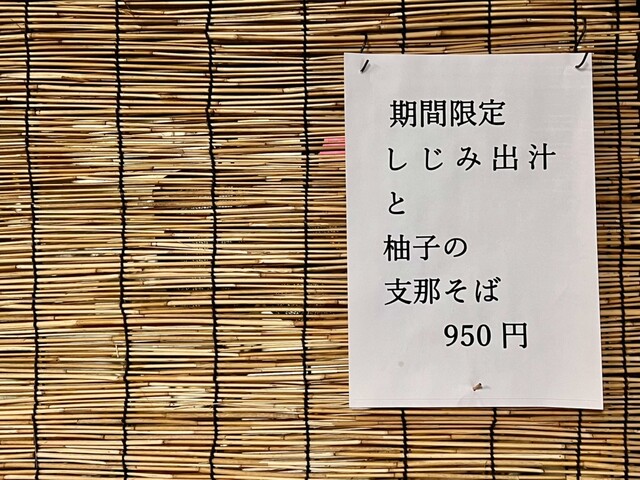 期間限定
しじみ出汁
と
柚子の
支那そば
950円